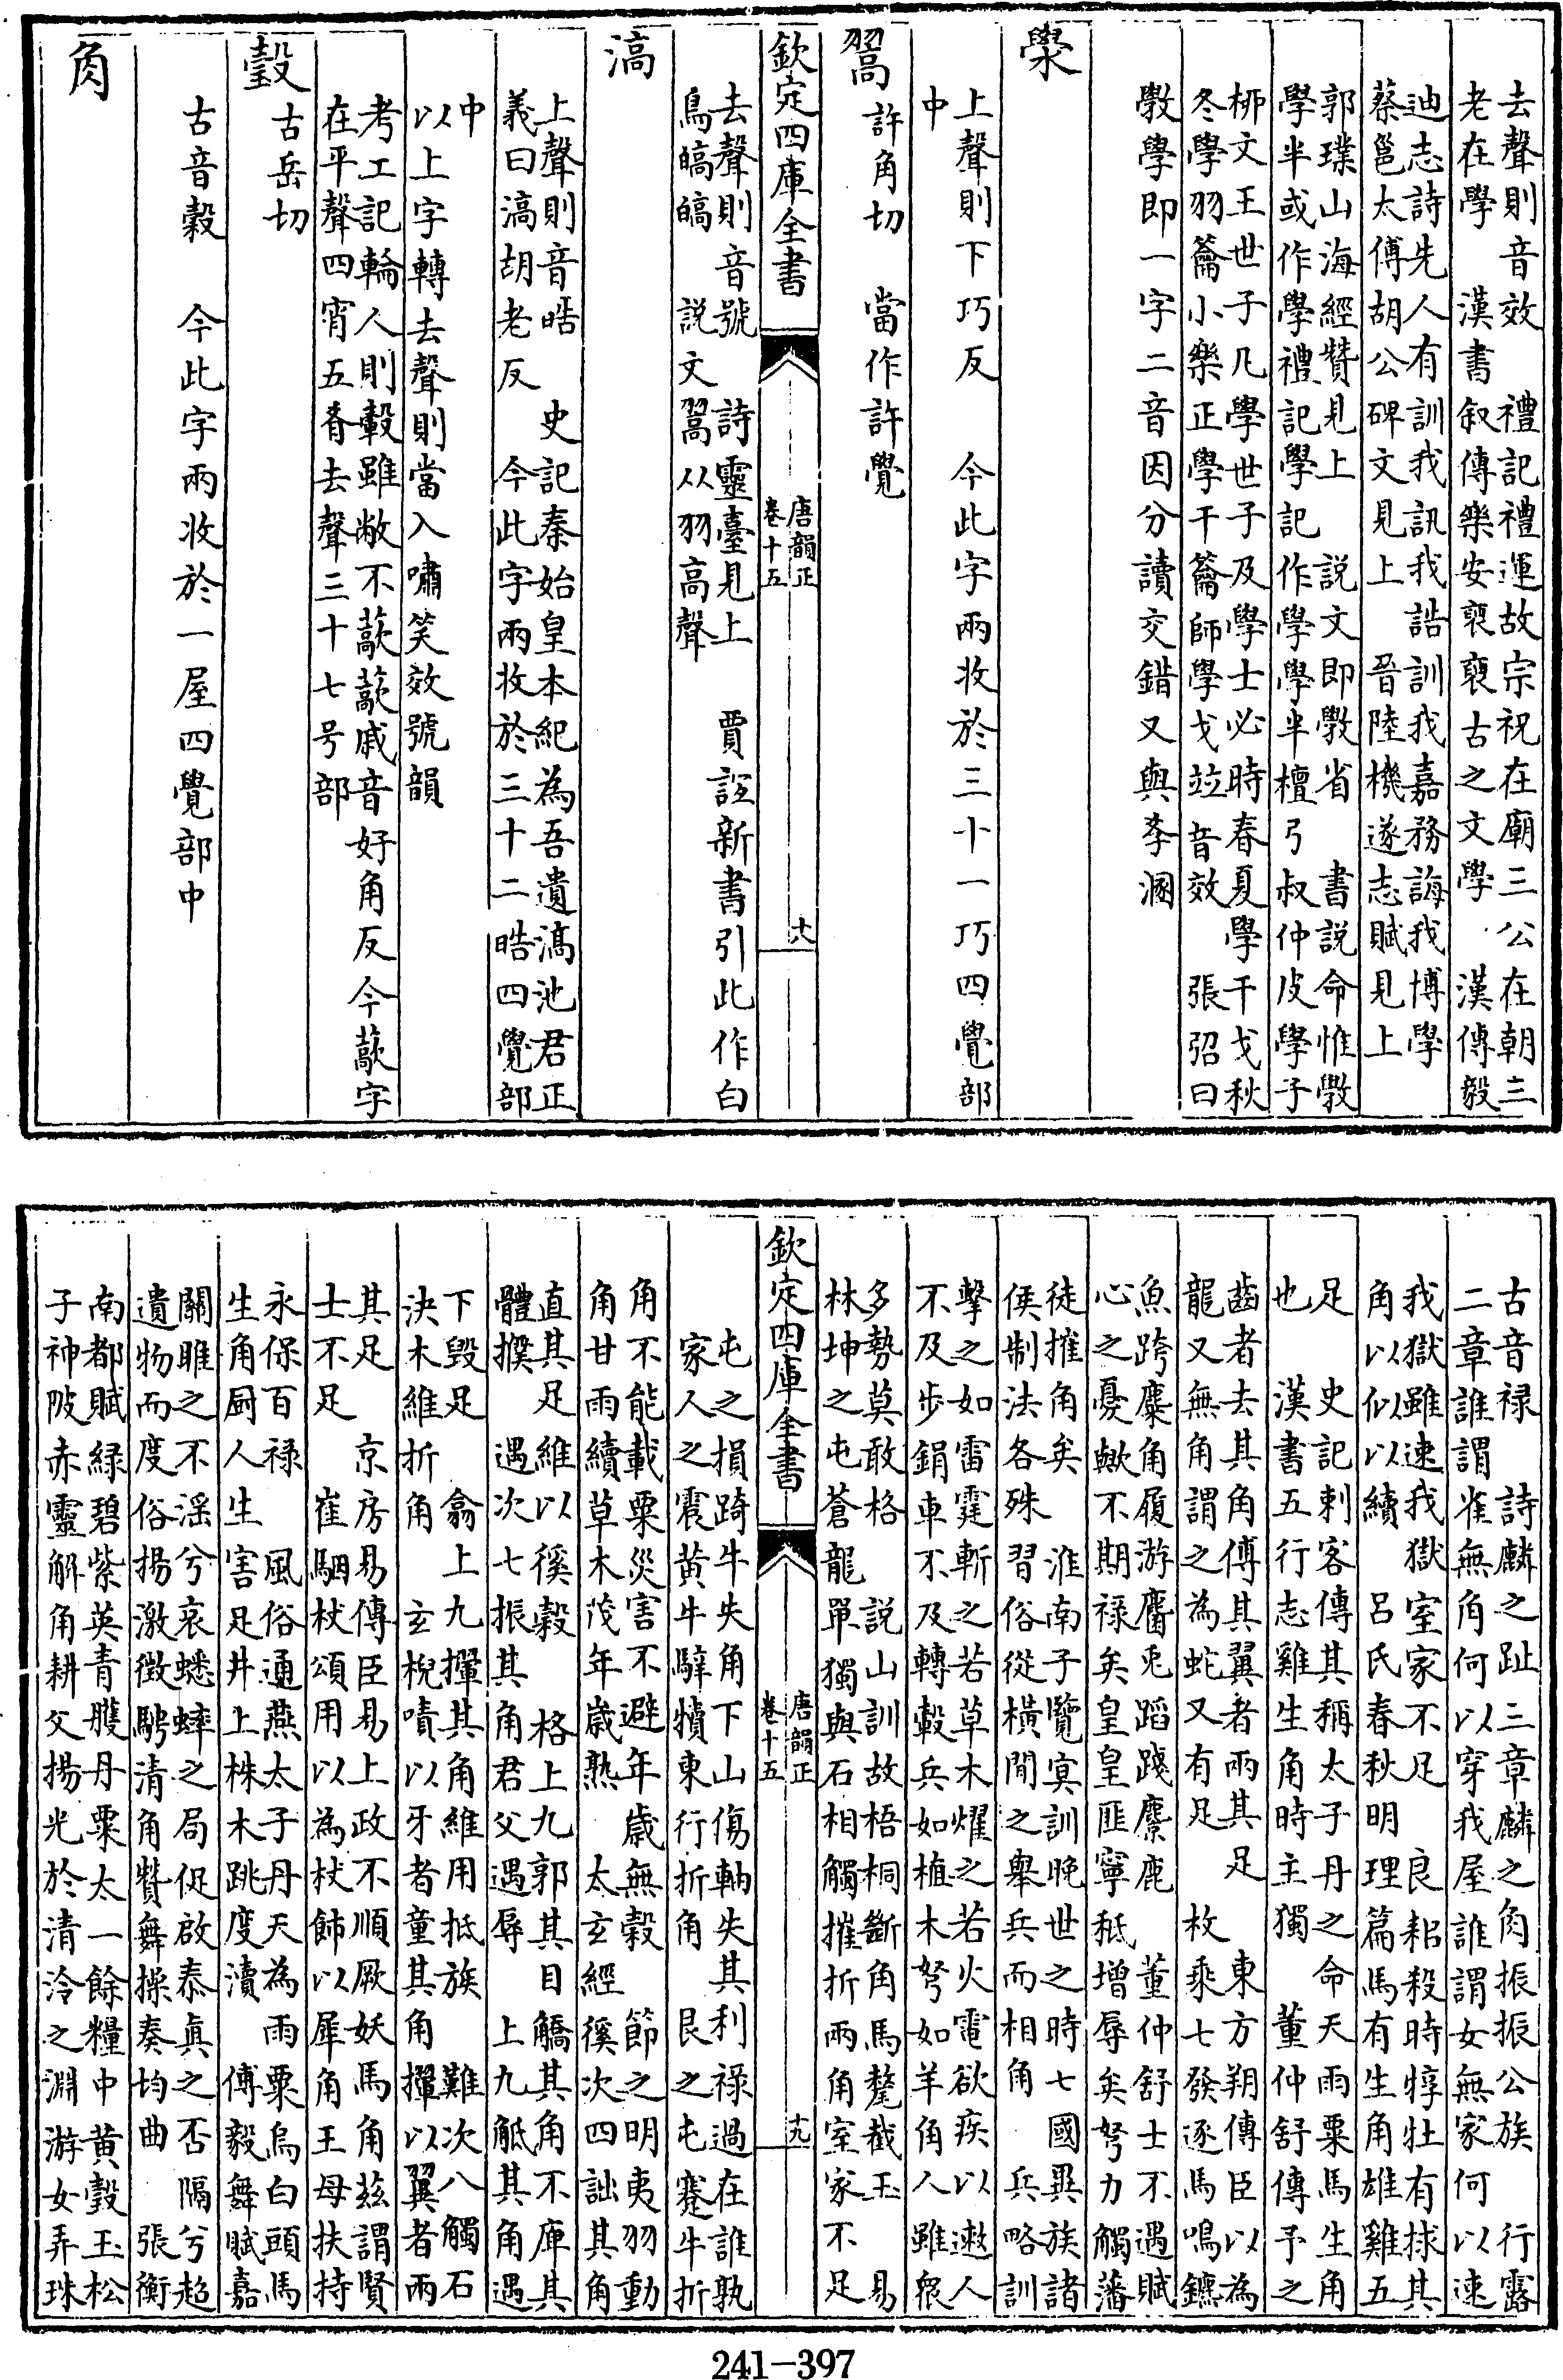 去聲則音效　禮記禮運故宗祝在廟三公在朝三
老在學　漢書叙傳樂安裒裒古之文學　漢傅毅
迪志詩先人有訓我訊我誥訓我嘉務誨我博學
蔡邕太傅胡公碑文見上　晉陸機遂志賦見上
郭璞山海經贊見上　說文即斆省　書說命惟斆
學半或作學禮記學記作學學半檀弓叔仲皮學子
柳文王世子凡學世子及學士必時春夏學干戈秋
冬學羽籥小樂正學干籥師學戈竝音效　張弨曰
斆學即一字二音因分讀交錯又與㸒溷
澩
上聲則下巧反　今此字兩收於三十一巧四覺部
中
翯許角切　當作許覺
欽定四庫全書
唐韻正
卷十五
十八
去聲則音號　詩靈臺見上　賈誼新書引此作白
鳥皜皜　說文翯从羽高聲
滈
上聲則音皓　史記秦始皇本紀為吾遺滈池君正
義曰滈胡老反　今此字兩收於三十二皓四覺部
中
以上字轉去聲則當入嘯笑效號韻
考工記輪人則轂雖敝不藃藃戚音好角反今藃字
在平聲四宵五肴去聲三十七号部
㲉古岳切
古音穀　今此字兩收於一屋四覺部中
角
古音祿　詩麟之趾三章麟之角振振公族　行露
二章誰謂雀無角何以穿我屋誰謂女無家何以速
我獄雖速我獄室家不足　良耜殺時犉牡有捄其
角以似以續　呂氏春秋明理篇馬有生角雄雞五
足　史記刺客傳其稱太子丹之命天雨粟馬生角
也　漢書五行志雞生角時主獨　董仲舒傳予之
齒者去其角傅其翼者兩其足　東方朔傳臣以為
龍又無角謂之為蛇又有足　枚乘七發逐馬鳴鑣
魚跨麋角履游麕兎蹈踐麖鹿　董仲舒士不遇賦
心之憂歟不期祿矣皇皇匪寧秪增辱矣努力觸藩
徒摧角矣　淮南子覽冥訓晚世之時七國異族諸
侯制法各殊習俗從橫間之舉兵而相角　兵略訓
擊之如雷霆斬之若草木燿之若火電欲疾以遫人
不及步鋗車不及轉轂兵如植木弩如羊角人雖衆
多勢莫敢格　說山訓故梧桐斷角馬氂截玉　易
林坤之屯蒼龍單獨與石相觸摧折兩角室家不足
欽定四庫全書
唐韻正
卷十五
十九
屯之損踦牛失角下山傷軸失其利祿過在誰孰
家人之震黃牛騂犢東行折角　艮之屯蹇牛折
角不能載粟災害不避年歲無穀　節之明夷羽動
角甘雨續草木茂年歲熟　太玄經徯次四詘其角
直其足維以徯穀　格上九郭其目觿其角不庳其
體撲　遇次七振其角君父遇辱　上九觝其角遇
下毀足　翕上九揮其角維用抵族　難次八觸石
決木維折角　玄棿嘖以牙者童其角攡以翼者兩
其足　京房易傳臣易上政不順厥妖馬角茲謂賢
士不足　崔駰杖頌用以為杖飾以犀角王母扶持
永保百祿　風俗通燕太子丹天為雨粟烏白頭馬
生角厨人生害足井上株木跳度瀆　傅毅舞賦嘉
關雎之不淫兮哀蟋蟀之局促啟泰真之否隔兮超
遺物而度俗揚激徵騁清角贊舞操奏均曲　張衡
南都賦綠碧紫英青雘丹粟太一餘糧中黃瑴玉松
子神陂赤靈解角耕父揚光於清泠之淵游女弄珠
241-397